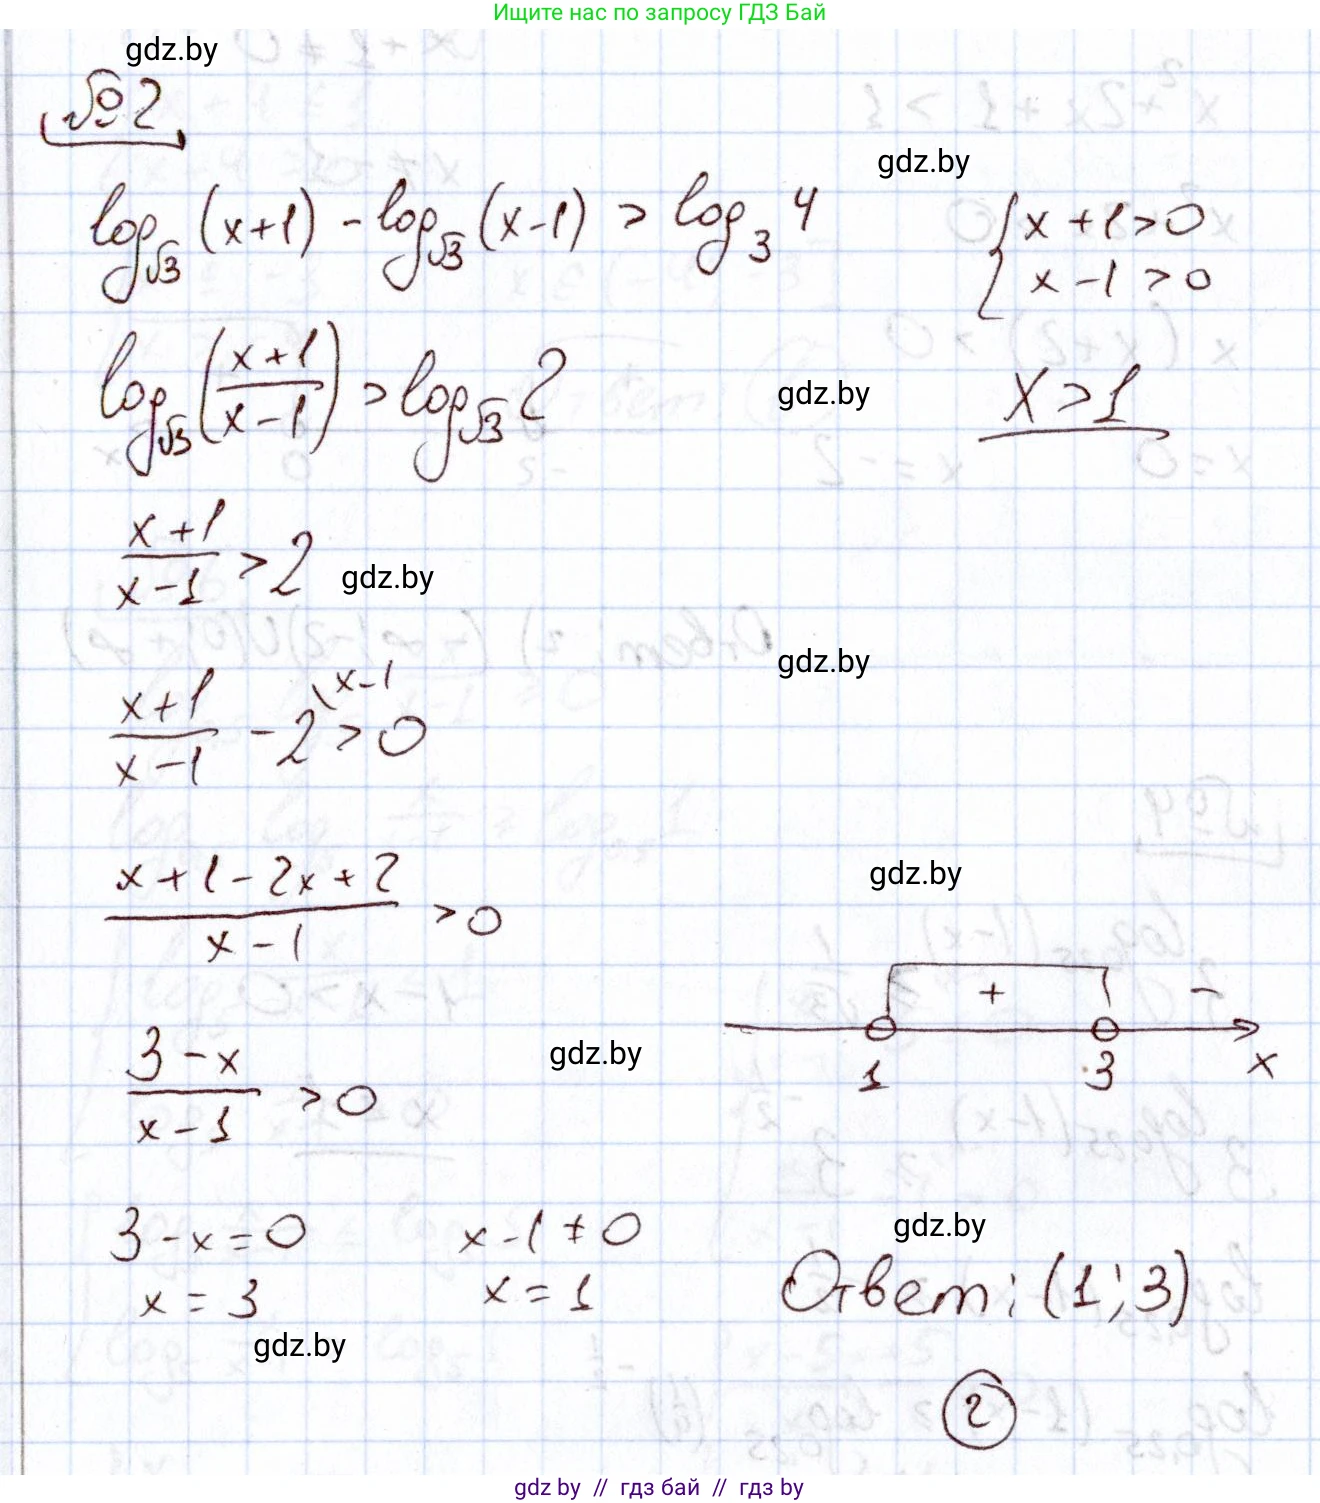 Ищите нас по запросу ГДЗ Бай
gdz.by
№2
gdz.by
log_√3 (x+1) - log_√3 (x-1) > log_3 4
{ x+1>0
x-1>0
log_√3 ((x+1)/(x-1)) > log_√3 2
gdz.by
x>1
(x+1)/(x-1) > 2
gdz.by
gdz.by
(x+1)/(x-1) - 2 \x-1 > 0
(x+1-2x+2)/(x-1) > 0
gdz.by
+ -
1 3 x
(3-x)/(x-1) > 0
gdz.by
3-x=0 x-1≠0
x=3 x=1
gdz.by
gdz.by
Ответ: (1;3)
2
gdz by // гдз бай // гдз by